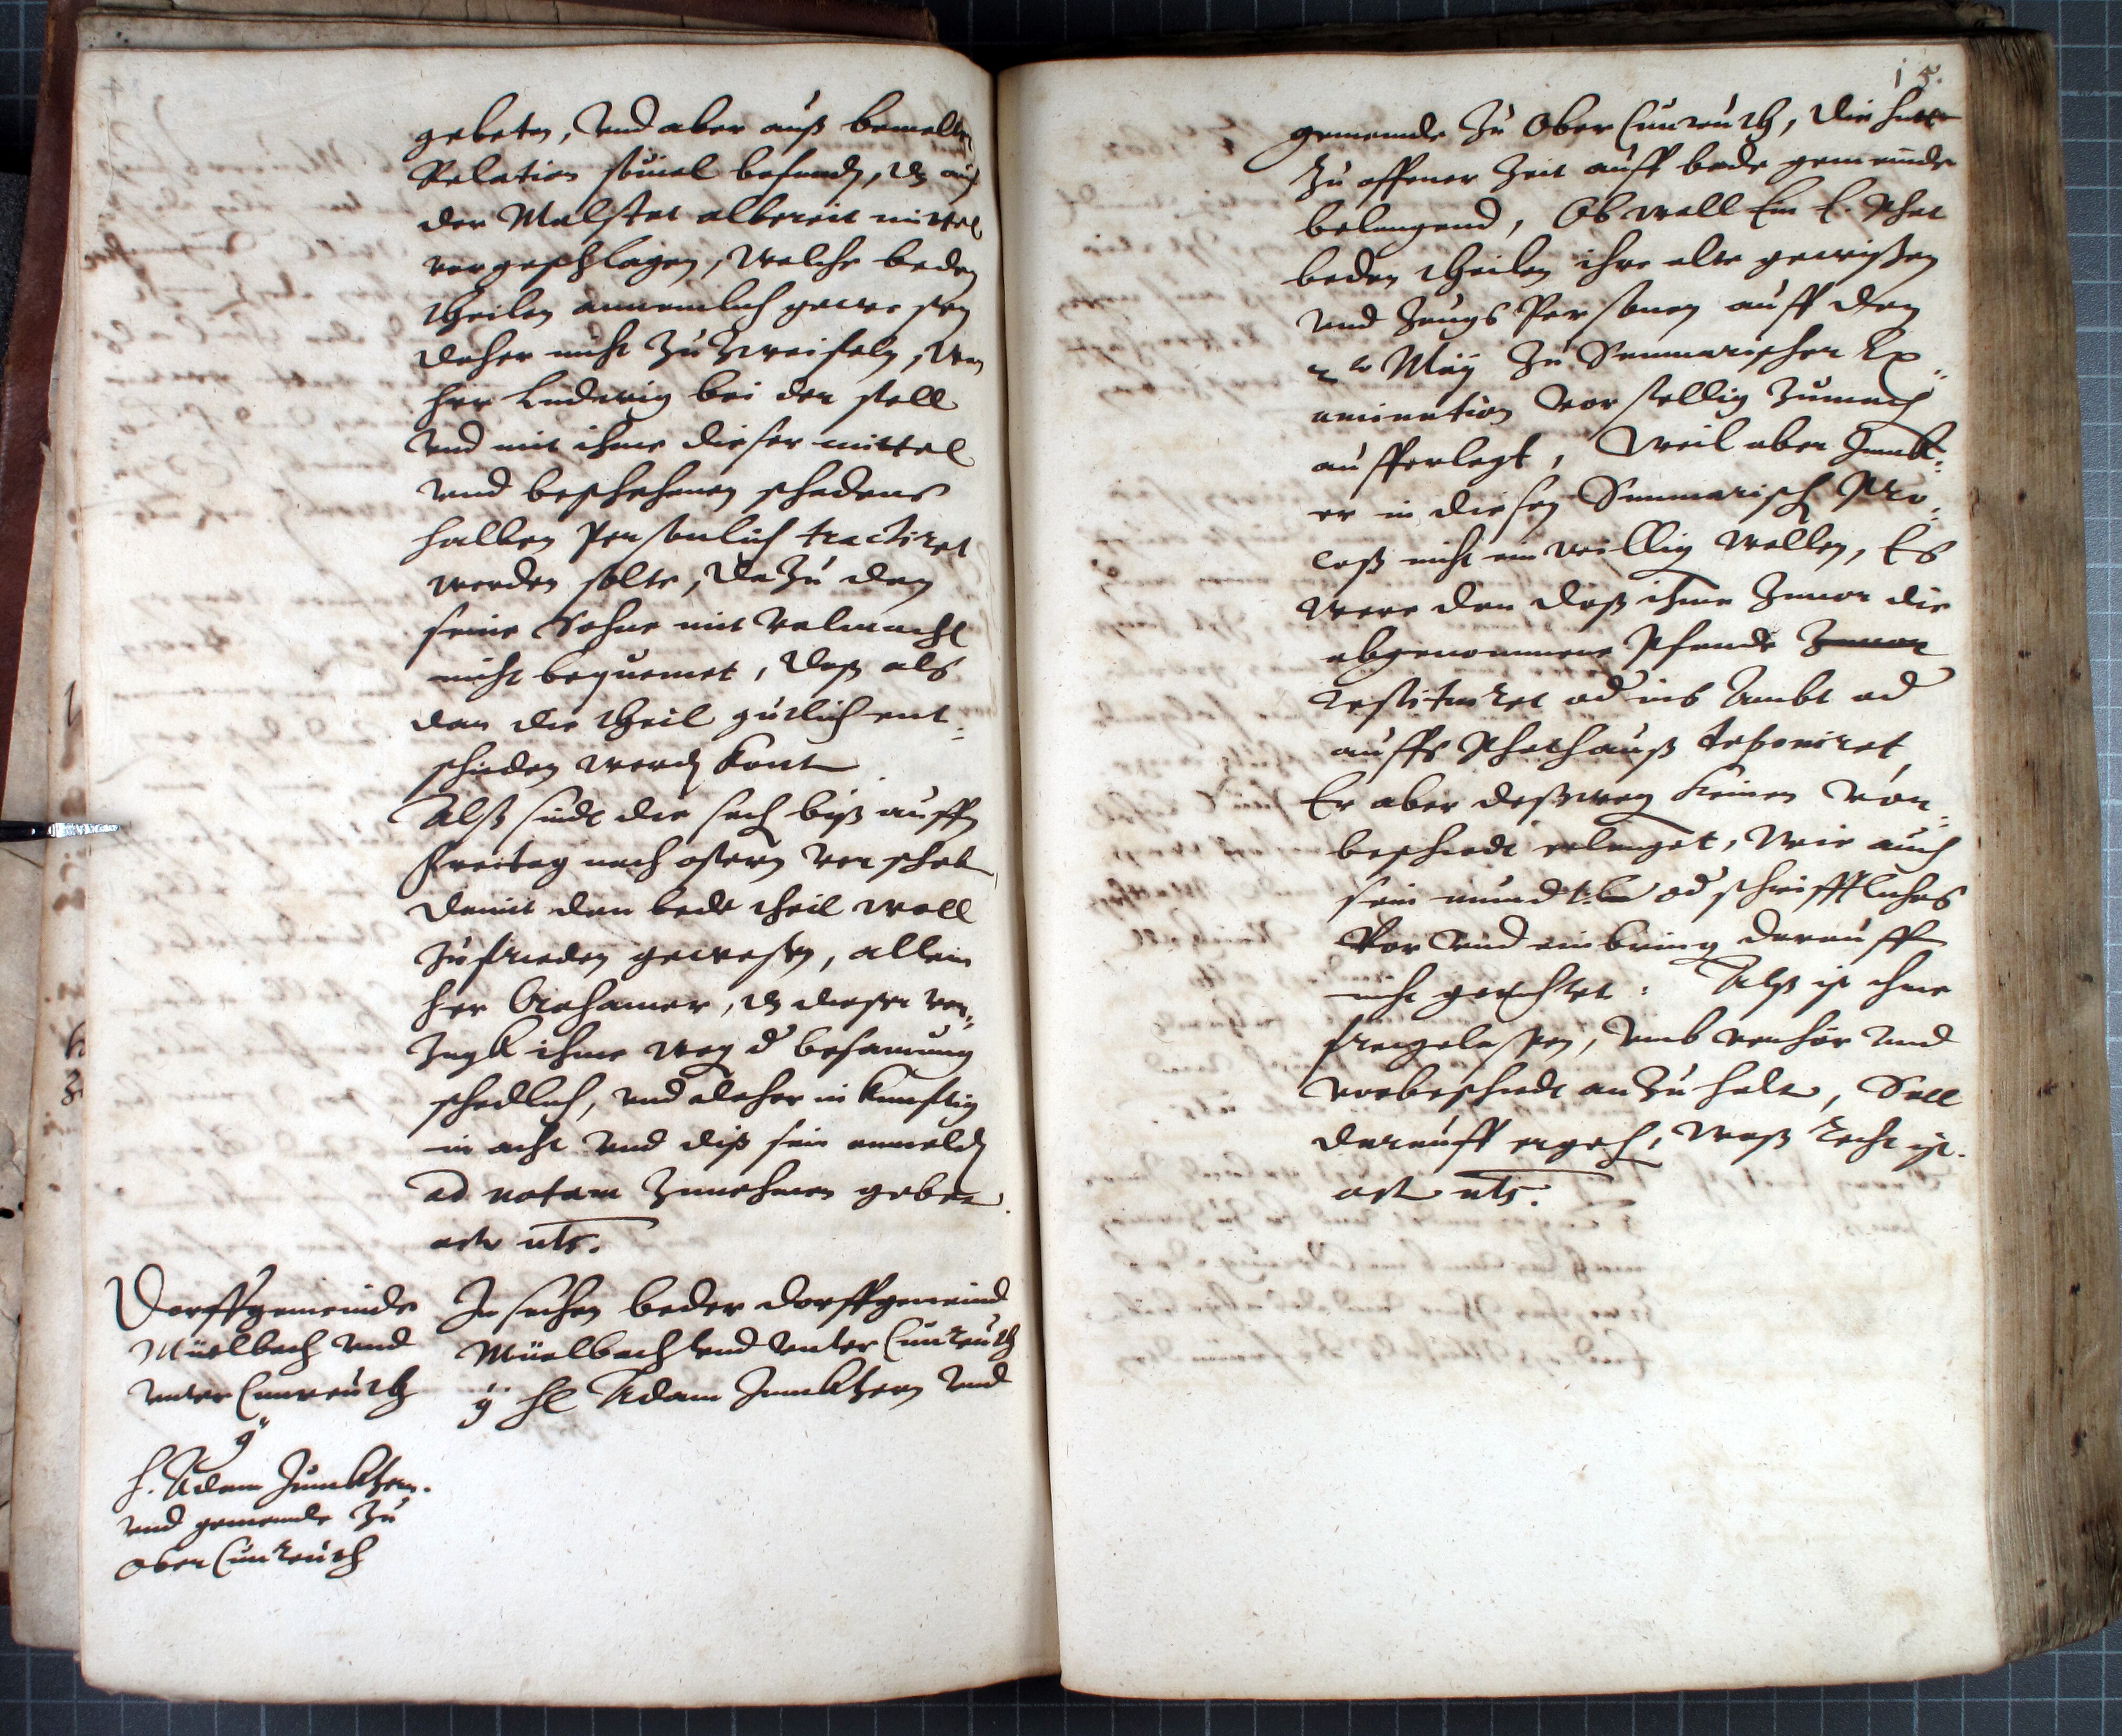 gebeten, Vnd aber auß bemelter
Relation souiel befunden, dz auf
der Malstat albereit mittel
vorgeschlagen, Welche beden
theilen annemlich gewesen
daher nicht zu Zweifeln, Wan
herr Ludwig bei der stell
Vnd mit ihme dieser mittel
Vnd beschehenen schadens
halben Persönlich tractiret
werden solte, dazu dan
seine Sohne mit Volmacht
nicht bequemet, daß als
dan die theil gütlich ent:
schieden werden kont
Alß sindt die sach biß auffn
Freitag nach ostern verschoben
damit dan bede theil woll
zufrieden gewesen, allein
her Grahamer, dz dieser ver„
Zugk ihme weg d besamung
schedlich, vnd daher in künfftig
in acht vnd diß sein anmelden
ad notam Zunehmen gebeten.
act uts.
Dorffgemeinde
Müelbach vnd
vnter Cunreuth
g
h. Adam Junckhern.
vnd gemeinde zu
ober Cunreuth
In sachen beder dorffgemeind
Müelbach vnd vnter Cunreuth
g hl Adam Junckhern vnd
15.
gemeinde zu Ober Cunreuth, die hutt
zu offener Zeit auff bede gemeinde
belangend, Ob woll Ein E. Rhat
beden theilen ihre alte gewißen
vnd Zeugs Persönen auff den
2 May zu Summarischer Ex„
amination vorstellig zumach
aufferlegt, Weil aber Junck:
er in diesen Summarisch Pro:
ceß nicht einwillig wollen, Es
were dan daß ihme Zuuor die
abgenommene Pfande Zuuor
restituiret od ins Ambt od
auffs Rhathauß deponiret,
Er aber deßweg keinen Vor„
bescheidt erlanget, Wie auch
sein mundtlich od schrifftliches
Vor vnd einbring darauff
nicht gerichtet: Alß ist ihme
freigelassen, vmb verhör vnd
vorbescheidt anzuhalten, Soll
darauff ergeh, Waß recht ist.
act uts.